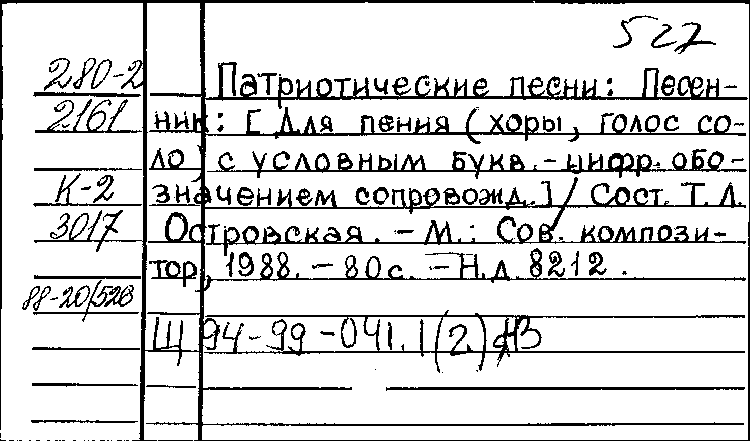 527
280-2
2161
К-2
3017
88-20/528
Патриотические песни: Песен-
ник: [Для пения (хоры, голос со-
ло) с условным букв.-цифр. обо-
значением сопровожд.] / Сост. Т.Л.
Островская. – М.: Сов. компози-
тор, 1988. – 80с. – Н.д. 8212.
Щ 94-99-041.1(2)